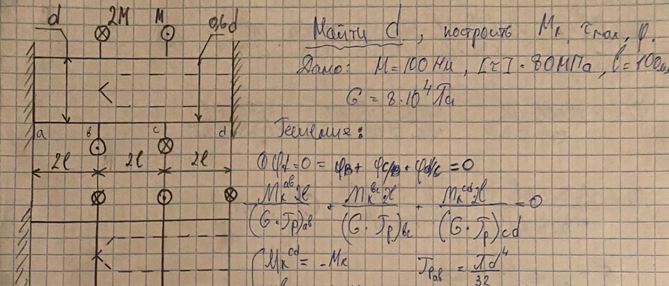 d 2M M 0,6d
a b c d
2l 2l 2l
Найти d, построить Mк, τmax, φ.
Дано: M=100Нм, [τ]=80МПа, l=100
G = 8·10⁴Па
Решение:
φd=0= φB+ φC/B+ φd/c=0
Mкᵃᵇ2l/(G·Jp)ab + Mкᵇᶜ2l/(G·Jp)bc + Mкᶜᵈ2l/(G·Jp)cd =0
Mкᶜᵈ = -Mк Jpab = πd⁴/32